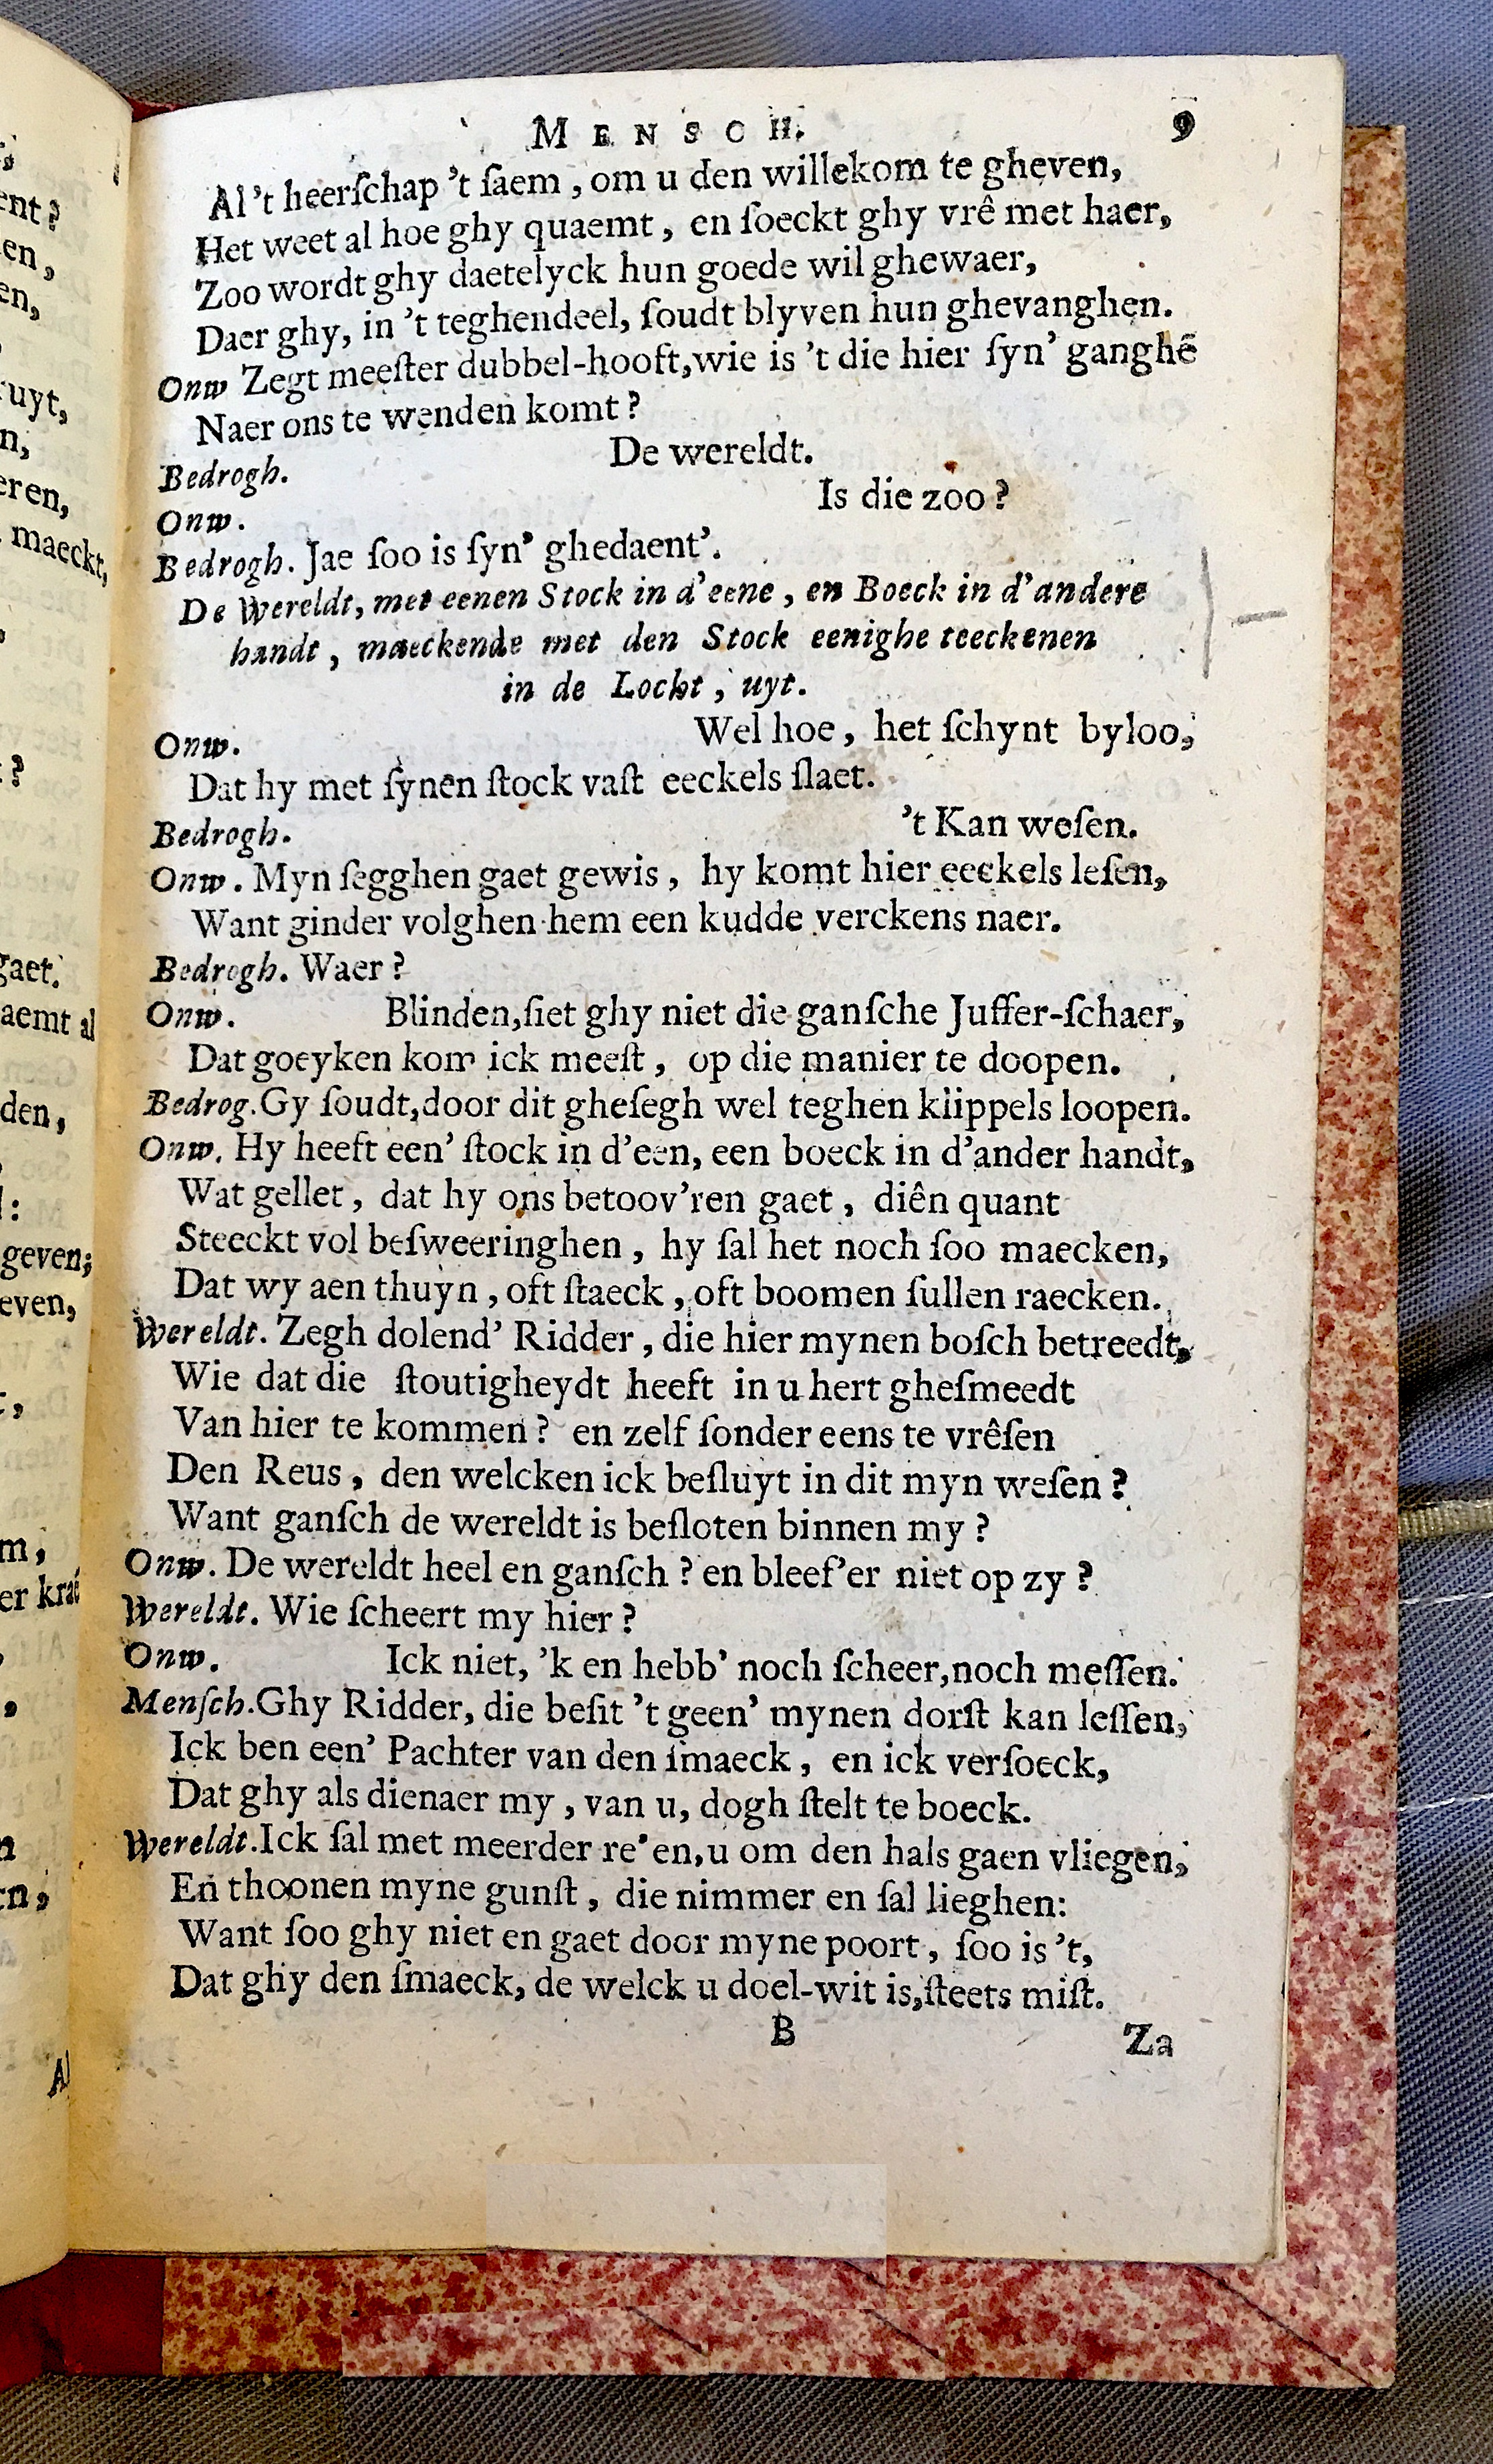 ent?
en,
en,
ruyt,
n,
eren,
maeckt,
?
gaet.
aemt al
den,
geven;
even,
m,
Al
MENSCH. 9
Al 't heerſchap 't ſaem, om u den willekom te gheven,
Het weet al hoe ghy quaemt, en ſoeckt ghy vrê met haer,
Zoo wordt ghy daetelyck hun goede wil ghewaer,
Daer ghy, in 't teghendeel, ſoudt blyven hun ghevanghen.
Onw Zegt meeſter dubbel-hooft, wie is 't die hier ſyn' ganghē
Naer ons te wenden komt?
Bedrogh. De wereldt.
Onw. Is die zoo?
Bedrogh. Jae ſoo is ſyn' ghedaent'.
De Wereldt, met eenen Stock in d'eene, en Boeck in d'andere
handt, maeckende met den Stock eenighe teeckenen
in de Locht, uyt.
Onw. Wel hoe, het ſchynt byloo,
Dat hy met ſynen ſtock vaſt eeckels ſlaet.
Bedrogh. 't Kan weſen.
Onw. Myn ſegghen gaet gewis, hy komt hier eeckels leſen,
Want ginder volghen hem een kudde verckens naer.
Bedrogh. Waer?
Onw. Blinden, ſiet ghy niet die ganſche Juffer-ſchaer,
Dat goeyken kom ick meeſt, op die manier te doopen.
Bedrog. Gy ſoudt, door dit gheſegh wel teghen klippels loopen.
Onw. Hy heeft een' ſtock in d'een, een boeck in d'ander handt,
Wat gellet, dat hy ons betoov'ren gaet, diên quant
Steeckt vol beſweeringhen, hy ſal het noch ſoo maecken,
Dat wy aen thuyn, oft ſtaeck, oft boomen ſullen raecken.
Wereldt. Zegh dolend' Ridder, die hier mynen boſch betreedt,
Wie dat die ſtoutigheydt heeft in u hert gheſmeedt
Van hier te kommen? en zelf ſonder eens te vrêſen
Den Reus, den welcken ick beſluyt in dit myn weſen?
Want ganſch de wereldt is beſloten binnen my?
Onw. De wereldt heel en ganſch? en bleef'er niet op zy?
Wereldt. Wie ſcheert my hier?
Onw. Ick niet, 'k en hebb' noch ſcheer, noch meſſen.
Menſch. Ghy Ridder, die beſit 't geen' mynen dorſt kan leſſen,
Ick ben een' Pachter van den ſmaeck, en ick verſoeck,
Dat ghy als dienaer my, van u, dogh ſtelt te boeck.
Wereldt. Ick ſal met meerder re'en, u om den hals gaen vliegen,
En thoonen myne gunſt, die nimmer en ſal lieghen:
Want ſoo ghy niet en gaet door myne poort, ſoo is 't,
Dat ghy den ſmaeck, de welck u doel-wit is, ſteets miſt.
B Za